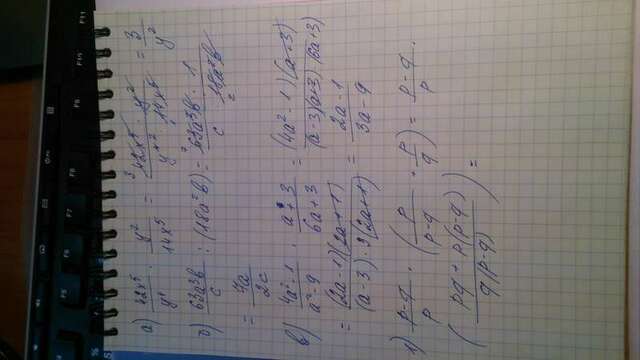 а) 42x⁵/y⁴ · y²/14x⁵ = 42x⁵ · y²/y⁴ · 14x⁵ = 3/y²
б) 63a³b/c : (18a²b) = 63a³b · 1/c · 18a²b
= 7a/2c
в) 4a²-1/a²-9 · a+3/6a+3 = (4a²-1)(a+3)/(a-3)(a+3)(6a+3)
= (2a-1)(2a+1)/(a-3)·3(2a+1) = 2a-1/3a-9
г) p-q/p · (p/p-q + p/q) = p-q/p ·
(pq + p(p-q)/q(p-q)) =